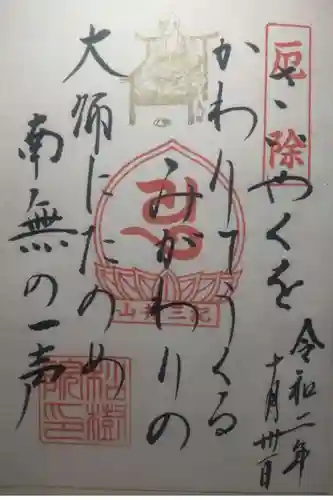 厄除
さいやくを
かわりてうくる
みがわりの
大師にたのめ
南無の一声
令和二年
十月卅一日
松樹
院印